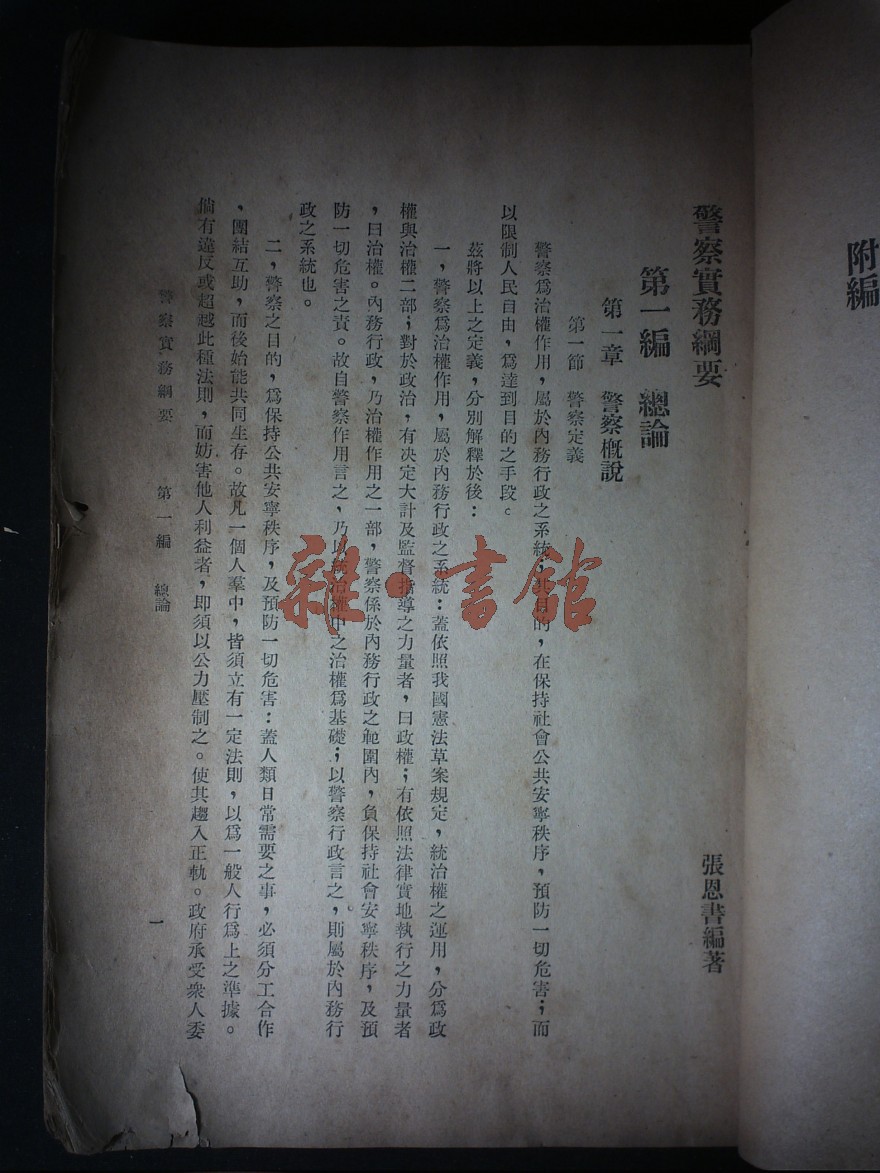 附編
警察實務綱要
張恩書編著
第一編　總論
第一章　警察概說
第一節　警察定義
警察爲治權作用，屬於內務行政之系統；其目的，在保持社會公共安寧秩序，預防一切危害；而
以限制人民自由，爲達到目的之手段。
茲將以上之定義，分別解釋於後：
一，警察爲治權作用，屬於內務行政之系統：蓋依照我國憲法草案規定，統治權之運用，分爲政
權與治權二部；對於政治，有決定大計及監督指導之力量者，曰政權；有依照法律實地執行之力量者
，曰治權。內務行政，乃治權作用之一部，警察係於內務行政之範圍內，負保持社會安寧秩序，及預
防一切危害之責。故自警察作用言之，乃以統治權中之治權爲基礎；以警察行政言之，則屬於內務行
政之系統也。
二，警察之目的，爲保持公共安寧秩序，及預防一切危害：蓋人類日常需要之事，必須分工合作
，團結互助，而後始能共同生存。故凡一個人羣中，皆須立有一定法則，以爲一般人行爲上之準據。
倘有違反或超越此種法則，而妨害他人利益者，即須以公力壓制之。使其趨入正軌。政府承受衆人委
警察實務綱要　第一編　總論
一
雜·書館